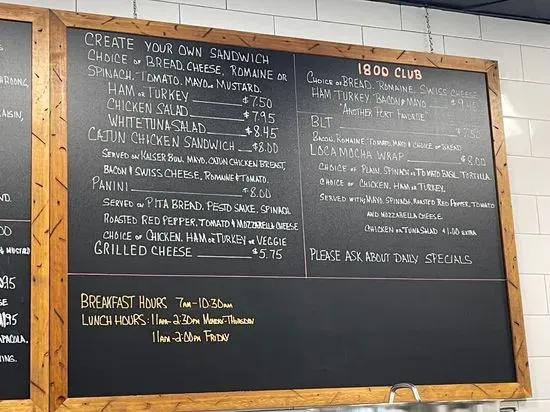 CREATE YOUR OWN SANDWICH
CHOICE OF BREAD, CHEESE, ROMAINE OR
SPINACH, TOMATO, MAYO OR MUSTARD.
HAM OR TURKEY $7.50
CHICKEN SALAD $7.95
WHITE TUNA SALAD $8.45
CAJUN CHICKEN SANDWICH $8.00
SERVED ON KAISER BUN, MAYO, CAJUN CHICKEN BREAST,
BACON & SWISS CHEESE, ROMAINE & TOMATO.
PANINI $8.00
SERVED ON PITA BREAD, PESTO SAUCE, SPINACH
ROASTED RED PEPPER, TOMATO & MOZZARELLA CHEESE
CHOICE OF CHICKEN, HAM OR TURKEY OR VEGGIE
GRILLED CHEESE $5.75
1800 CLUB
CHOICE OF BREAD, ROMAINE, SWISS CHEESE
HAM, TURKEY, BACON & MAYO $9.45
"ANOTHER FERT FAVORITE"
BLT $7.50
BACON, ROMAINE, TOMATO, MAYO & CHOICE OF BREAD
LOCA MOCHA WRAP $8.00
CHOICE OF PLAIN, SPINACH OR TOMATO BASIL TORTILLA
CHOICE OF CHICKEN, HAM OR TURKEY.
SERVED WITH MAYO, SPINACH, ROASTED RED PEPPER, TOMATO
AND MOZZARELLA CHEESE.
CHICKEN OR TUNA SALAD $1.00 EXTRA
PLEASE ASK ABOUT DAILY SPECIALS
BREAKFAST HOURS 7AM-10:30AM
LUNCH HOURS: 11AM-2:30PM MONDAY-THURSDAY
11AM-2:00PM FRIDAY